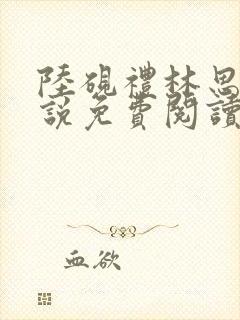 陸硯禮林思
說免費閱讀
血欲